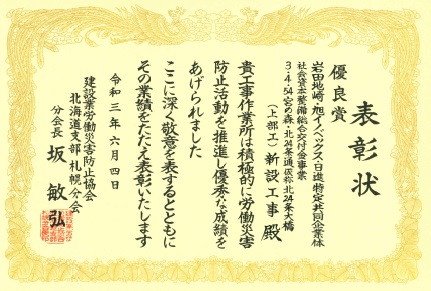 表彰状
優良賞
岩田地崎・旭イノベックス・日進特定共同企業体
社会資本整備総合交付金事業
3・4・54宮の森・北24条通仮称北24条大橋
(上部工)新設工事 殿
貴工事作業所は積極的に労働災害
防止活動を推進し優秀な成績を
あげられました
ここに深く敬意を表するとともに
その業績をたたえ表彰いたします
令和三年六月四日
建設業労働災害防止協会
北海道支部札幌分会
分会長 坂 敏弘